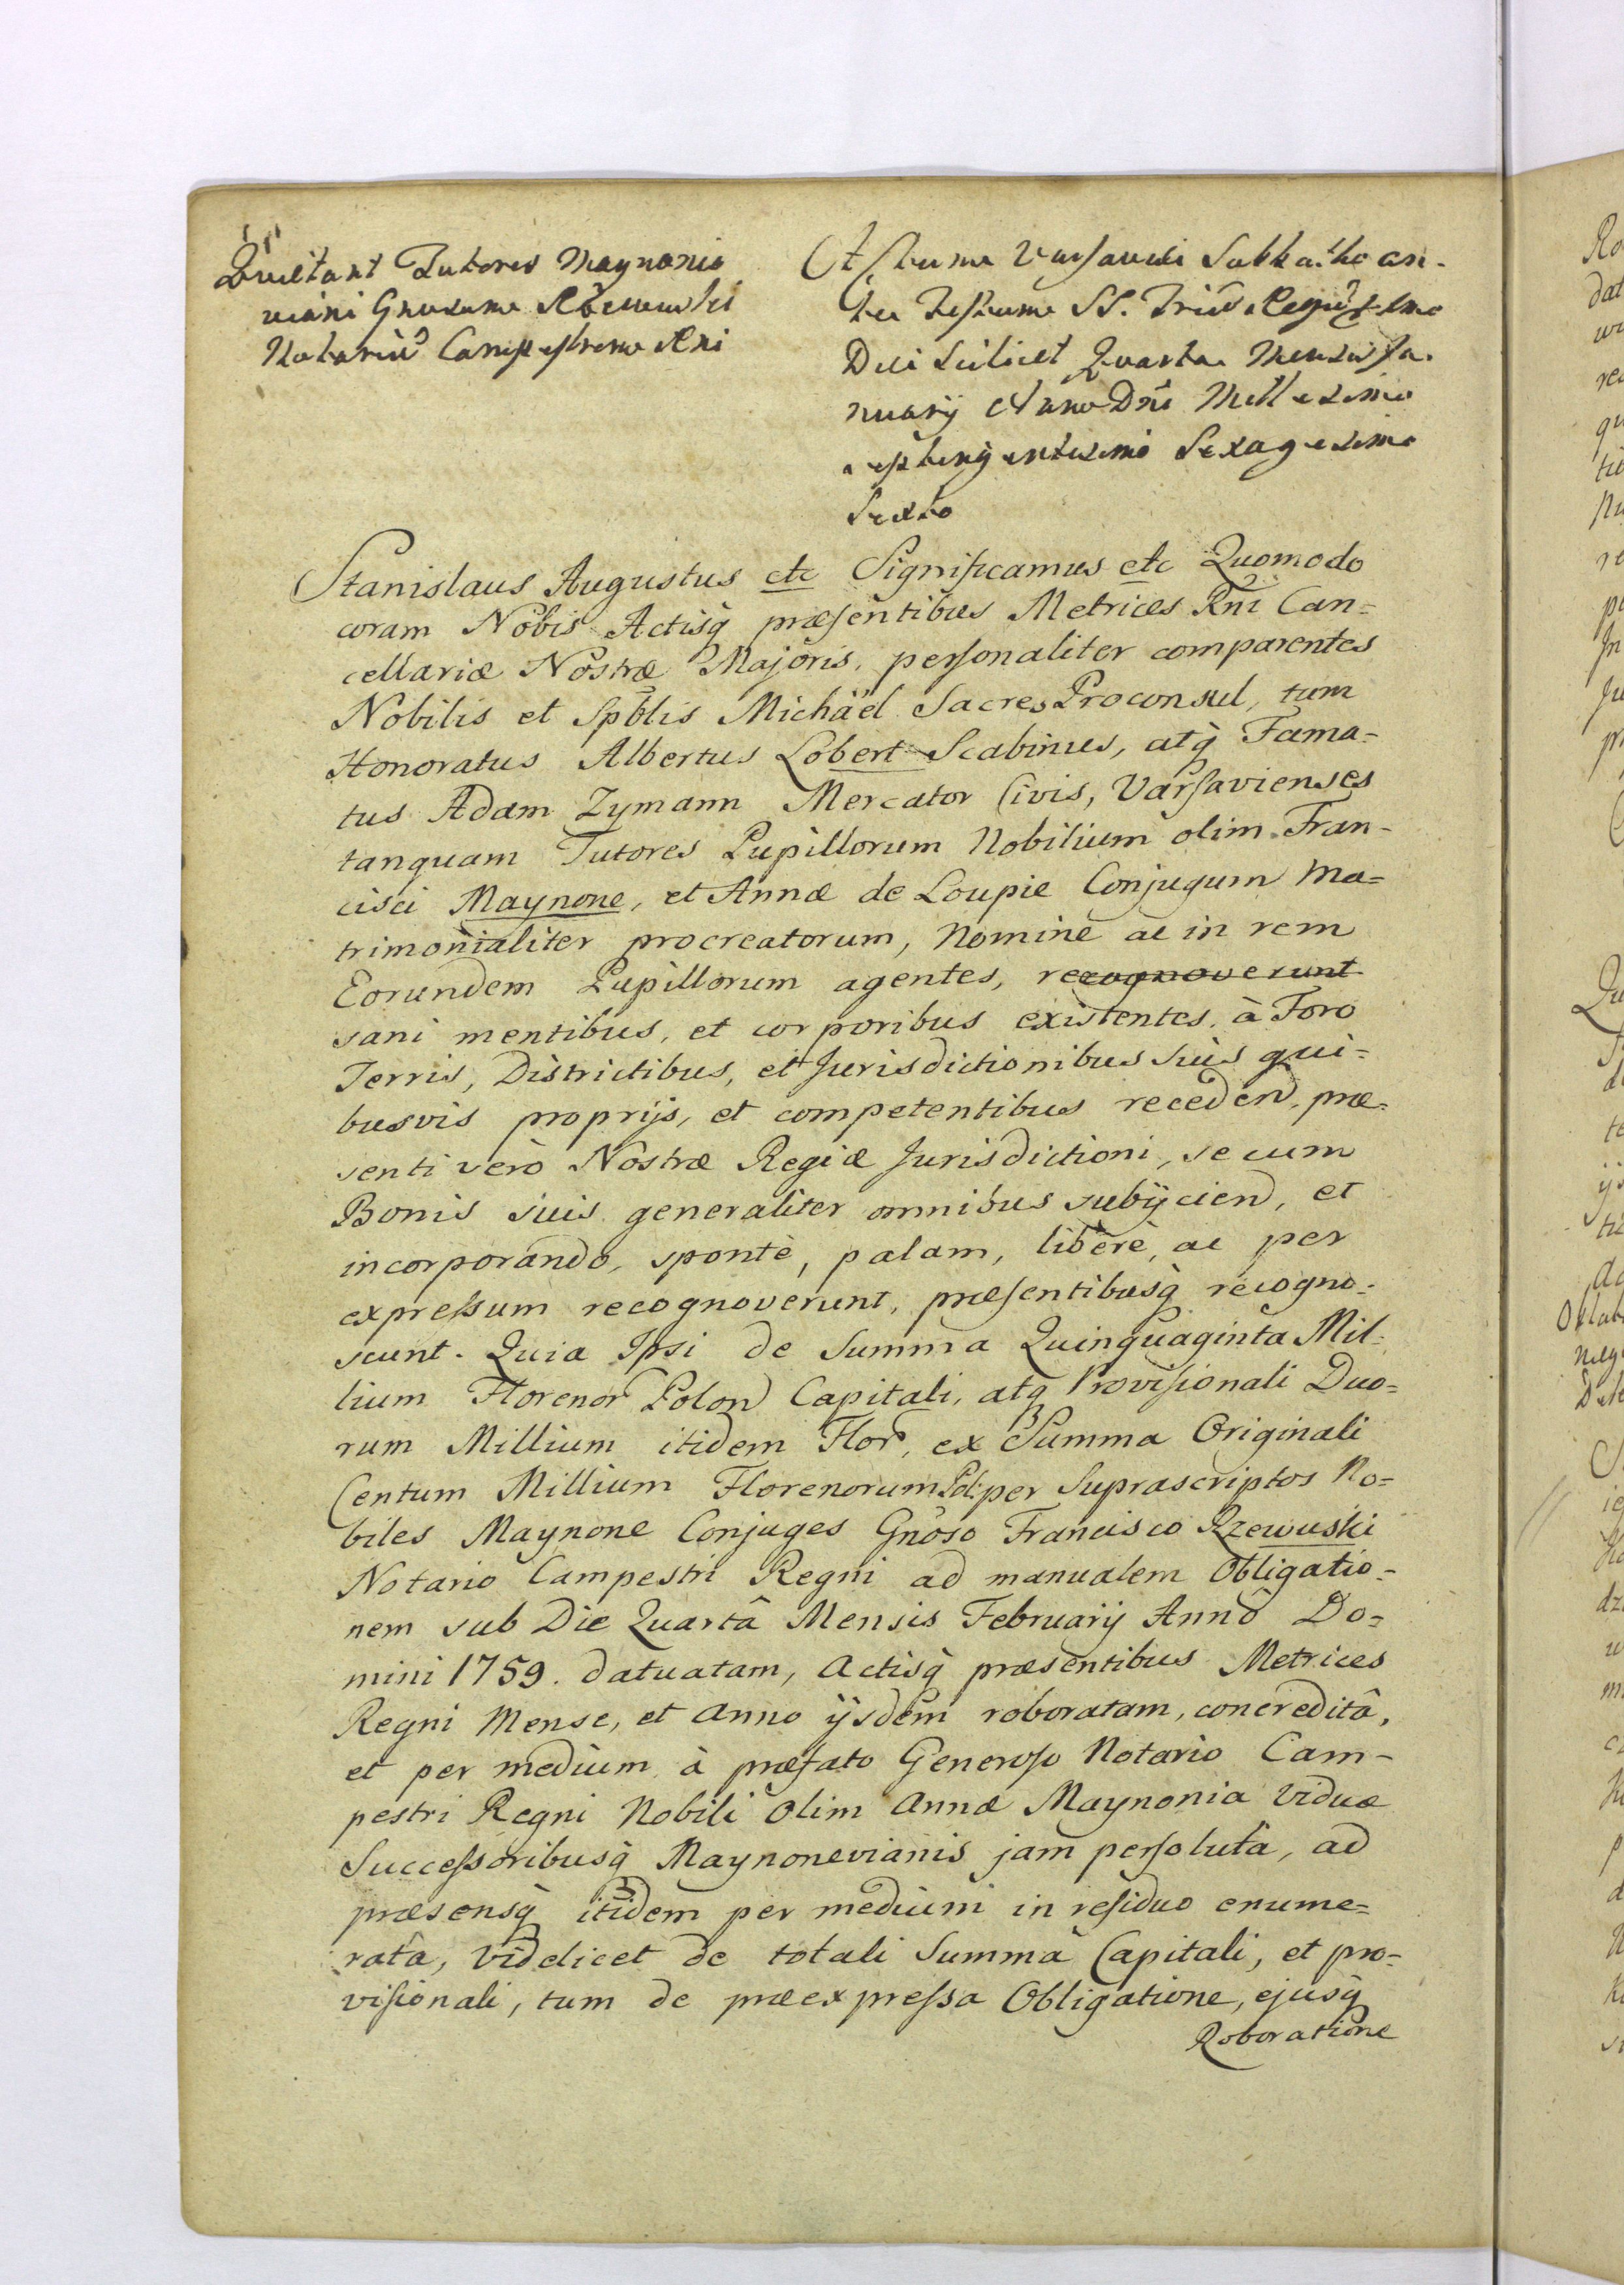 Quietant Tutores Maynonio
viani Gnosum Rzewuski
Notariũ Campestrem Rni
Actum Varsaviæ Sabbatho an-
te Festum SS. Triũ Regũ
Die scilicet Quarta Mensis Ja-
nuarij Anno Dni Millesimo
septingentesimo Sexagesimo
Sexto
Stanislaus Augustus etc Significamus etc Quomodo
coram Nobis Actisq̃ præsentibus Metrices Rni Can=
cellariæ Nostræ Majoris, personaliter comparentes
Nobilis et Spblis Michäel Sacres Proconsul, tum
Honoratus Albertus Lobert Scabinus, atq̃ Fama=
tus Adam Zymann Mercator Civis, Varsavienses
tanquam Tutores Pupillorum Nobilium olim Fran-
cisci Maynone, et Annæ de Loupie Conjugum Ma=
trimonialiter procreatorum, Nomine ac in rem
Eorundem Pupillorum agentes, recognoverunt
sani mentibus, et corporibus existentes, à Foro
Terris, Districtibus, et Jurisdictionibus suis qui=
busvis proprijs, et competentibus receden, præ=
senti verò Nostræ Regiæ Jurisdictioni, se cum
Bonis suis generaliter omnibus subijcien, et
incorporando, spontè, palam, liberè, ac per
expressum recognoverunt, præsentibusq̃ recogno-
scunt. Quia Ipsi de Summa Quinquaginta Mil-
lium Florenor Polon Capitali, atq̃ Provisionali Duo=
rum Millium itidem Flor, ex Summa Originali
Centum Millium Florenorum Pol: per Suprascriptos No=
biles Maynone Conjuges Gnoso Francisco Rzewuski
Notario Campestri Regni ad manualem Obligatio=
nem sub Die Quartâ Mensis February Annô Do=
mini 1759. datuatam, Actisq̃ præsentibus Metrices
Regni Mense, et Anno ijsdem roboratam, concreditâ,
et per medium à præfato Generoso Notario Cam-
pestri Regni Nobili olim Annæ Maynonia Viduæ
Successoribusq̃ Maynonevianis jam persolutâ, ad
præsensq̃ itidem per medium in residuo enume=
ratâ, videlicet de totali Summâ Capitali, et pro=
visionali, tum de præexpressa Obligatione, ejusq̃
Roboratione